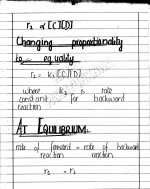 r₂ ∝ [C][D]
Changing proportionality
to equality
r₂ = k₂ [C][D]
where k₂ is rate
constant for backward
reaction
AT EQUILIBRIUM:
rate of forward = rate of backward
reaction reaction
r₁ = r₂